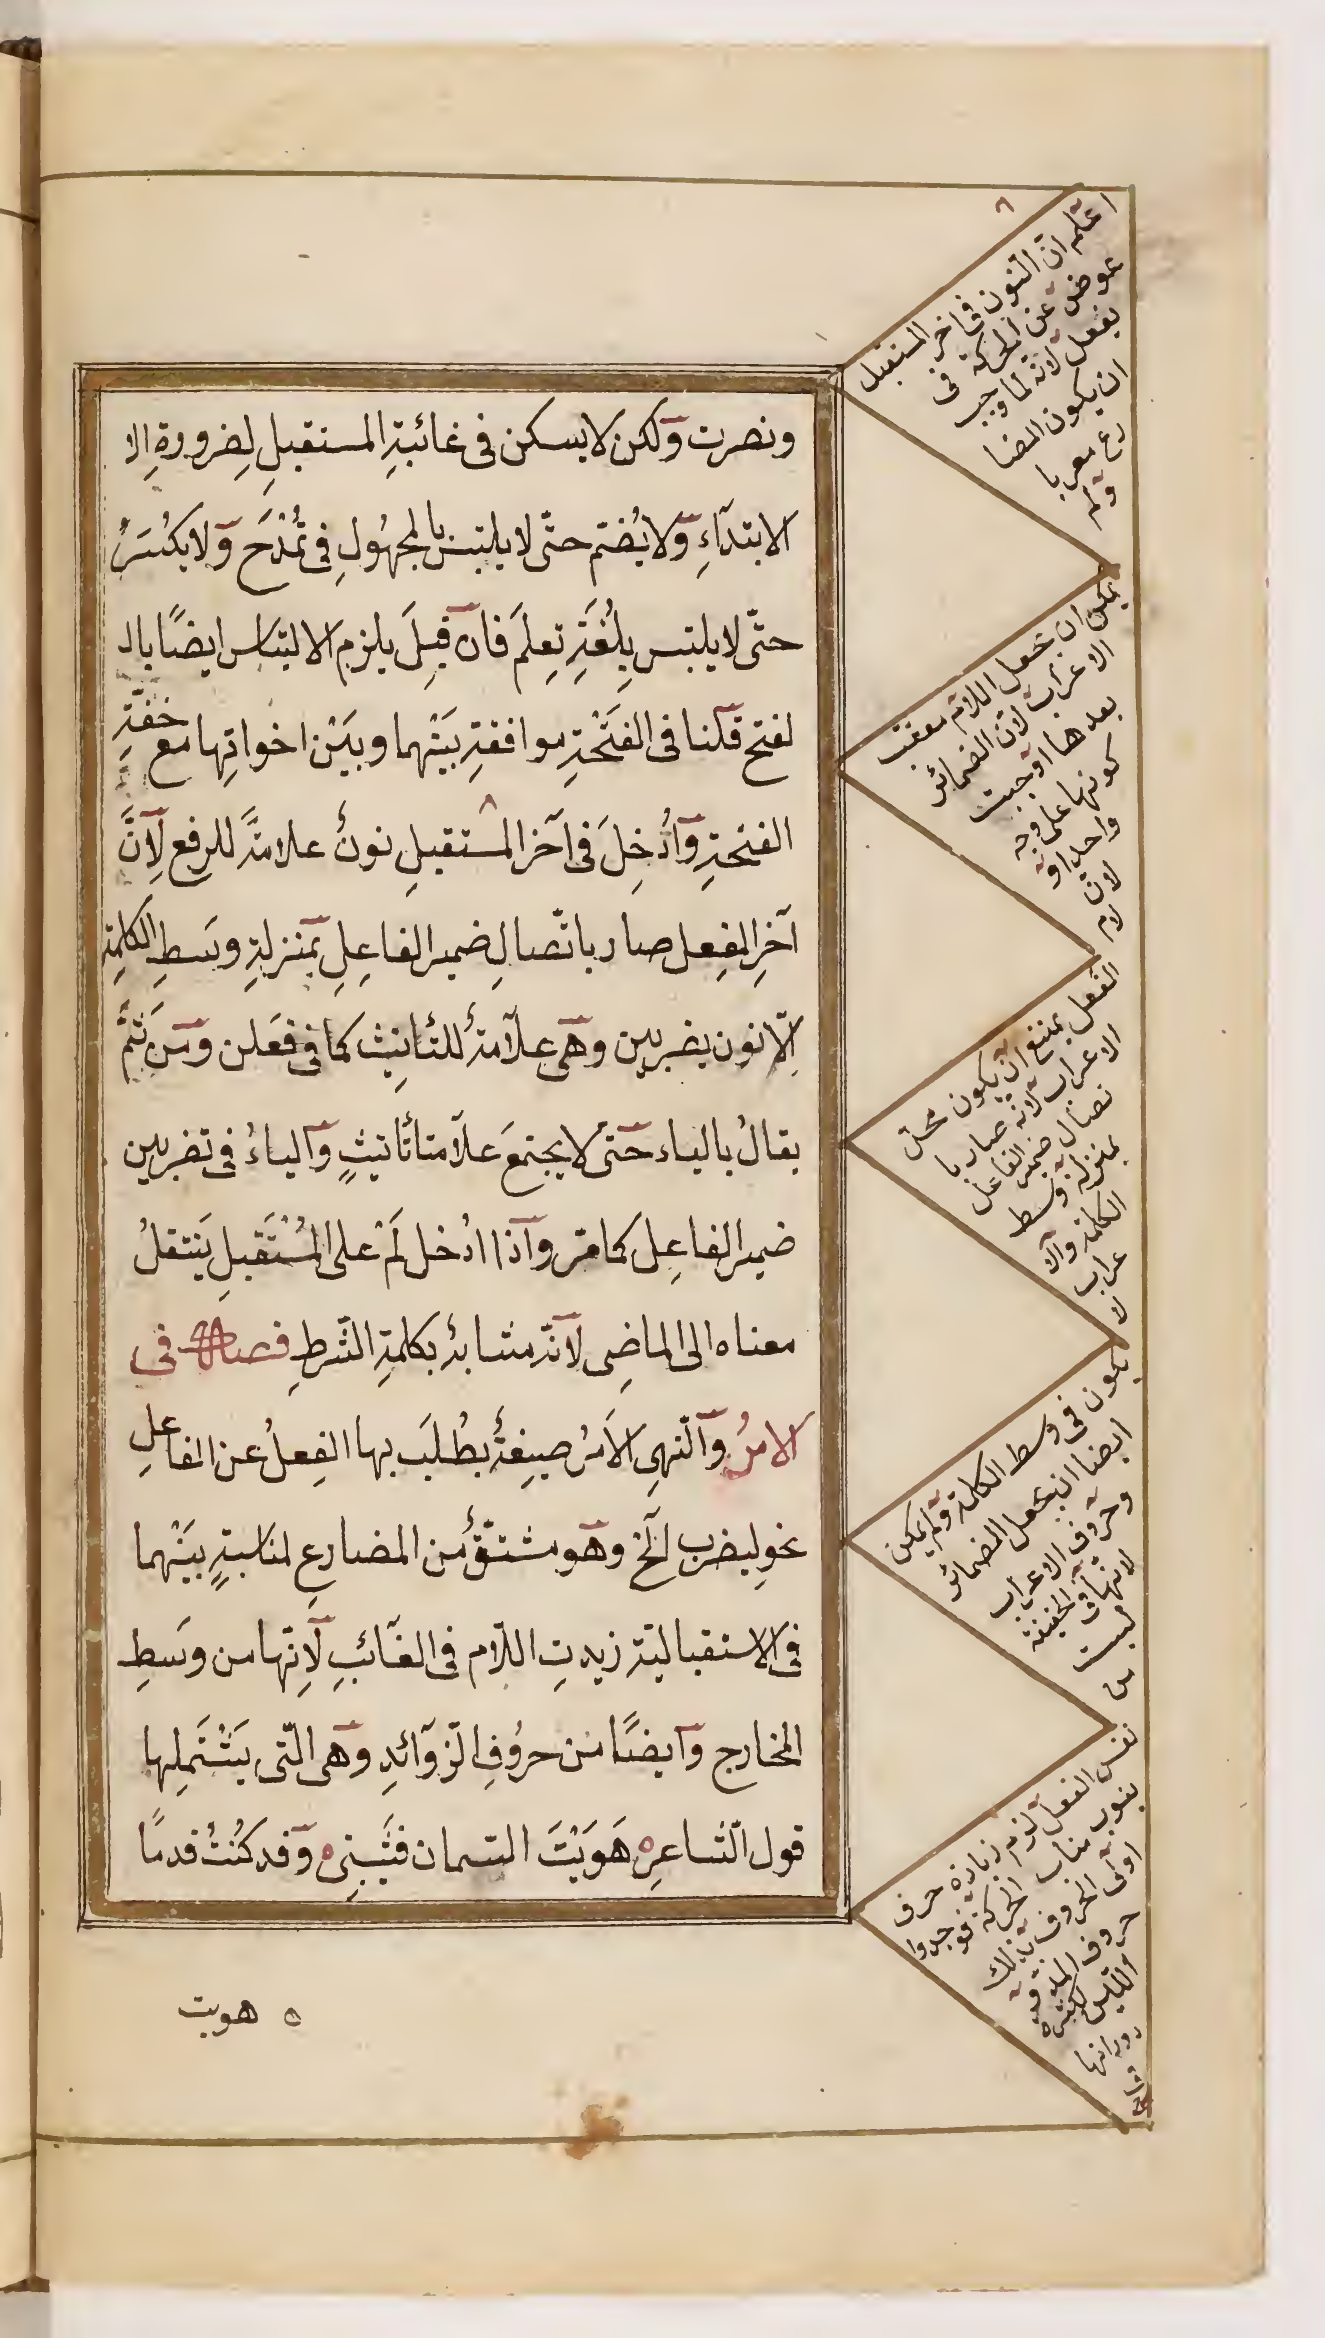 ونصرت ولكن لا يسكن فى غائبةِ المستقبلِ لِضرورةِ الا
الابتدآءِ ولا يُضم حتّى لا يلتبس بالمجهُولِ فى تُمْدَحَ ولا يكسَرُ
حتّى لا يلتبس بِلُغَةِ تِعلَمَ فان قيِلَ يلزم الالتباس ايضًا بالـ
لفتح قلنا فى الفَتْحَةِ موافقةِ بَيْنهما وبيَنْ اخواتِها مع خفّةِ
الفتحةِ وَاُدْخِلَ فى آخر المستقبلِ نونٌ علامةً للرفع لِاَنَّ
آخِرِ الفِعل صار باتّصالِ ضمير الفاعِلِ بمنزلةِ وسَطِ الكلِمةِ
اِلّا نون يضربين وهى علاَمةٌ للتأنِيث كما فى فعَلن ومن ثَمَّ
يقالُ بالياء حَتىّ لا يجتمعَ علاَمتا تأنيثٍ والياءُ فى تضربين
ضميرالفاعِل كما مّر واذا ادُخل لَمْ على المُسْتَقبِلِ يَنتقلُ
معناه الى الماضِى لاَنّه مشابهٌ بكلمةِ الشّرطِ فصل فى
الامرُ والنّهىِ الاَمرُ صيِغةٌ يطُلبَ بها الفِعلُ عن الفاعلِ
نحو لِيضرب اَلخ وهو مشتّقٌ من المضارِعِ لمناسبةٍ بينَهما
فى الاستقباليّة زيدتِ اللّام فى الغَائبِ لاَنِّها من وسَطِ
المخارج وايضًا من حروُفِ الزّوآئدِ وهى الّتى يَشْتَمِلها
قول الشّاعرِ ه هَوَيْتَ السّمان فشَّيبنِى ه وقد كنُتُ قدمًا
ه هويت
٨
اعلم انّ النون فى اخر المستقبل
عوض عن الحركة فى
يفعل لانّه لما وجب
ان يكون المضا
رع معربا
ولم
يمكن ان يجعل اللام معتقب
الاعراب لانّ الضمائر
بعدها اوجبت
كونها على وجه
واحد او
لان
لام
الفعل يمتنع ان يكون محل
الاعراب لانه صار با
تصال ضمير الفاعل
بمنزلة وسط
الكلمة والا
عراب
لا
يكون فى وسط الكلمة ولم يمكن
ايضا ان يجعل الضمائر
وحروف الاعراب
لانها فى الحقيقة
ليست
من
نفس الفعل لزم زيادة حرف
ينوب مناب الحركة فوجدوا
اولى الحروف بذلك
حروف المد
واللين لكثرة
دورانها